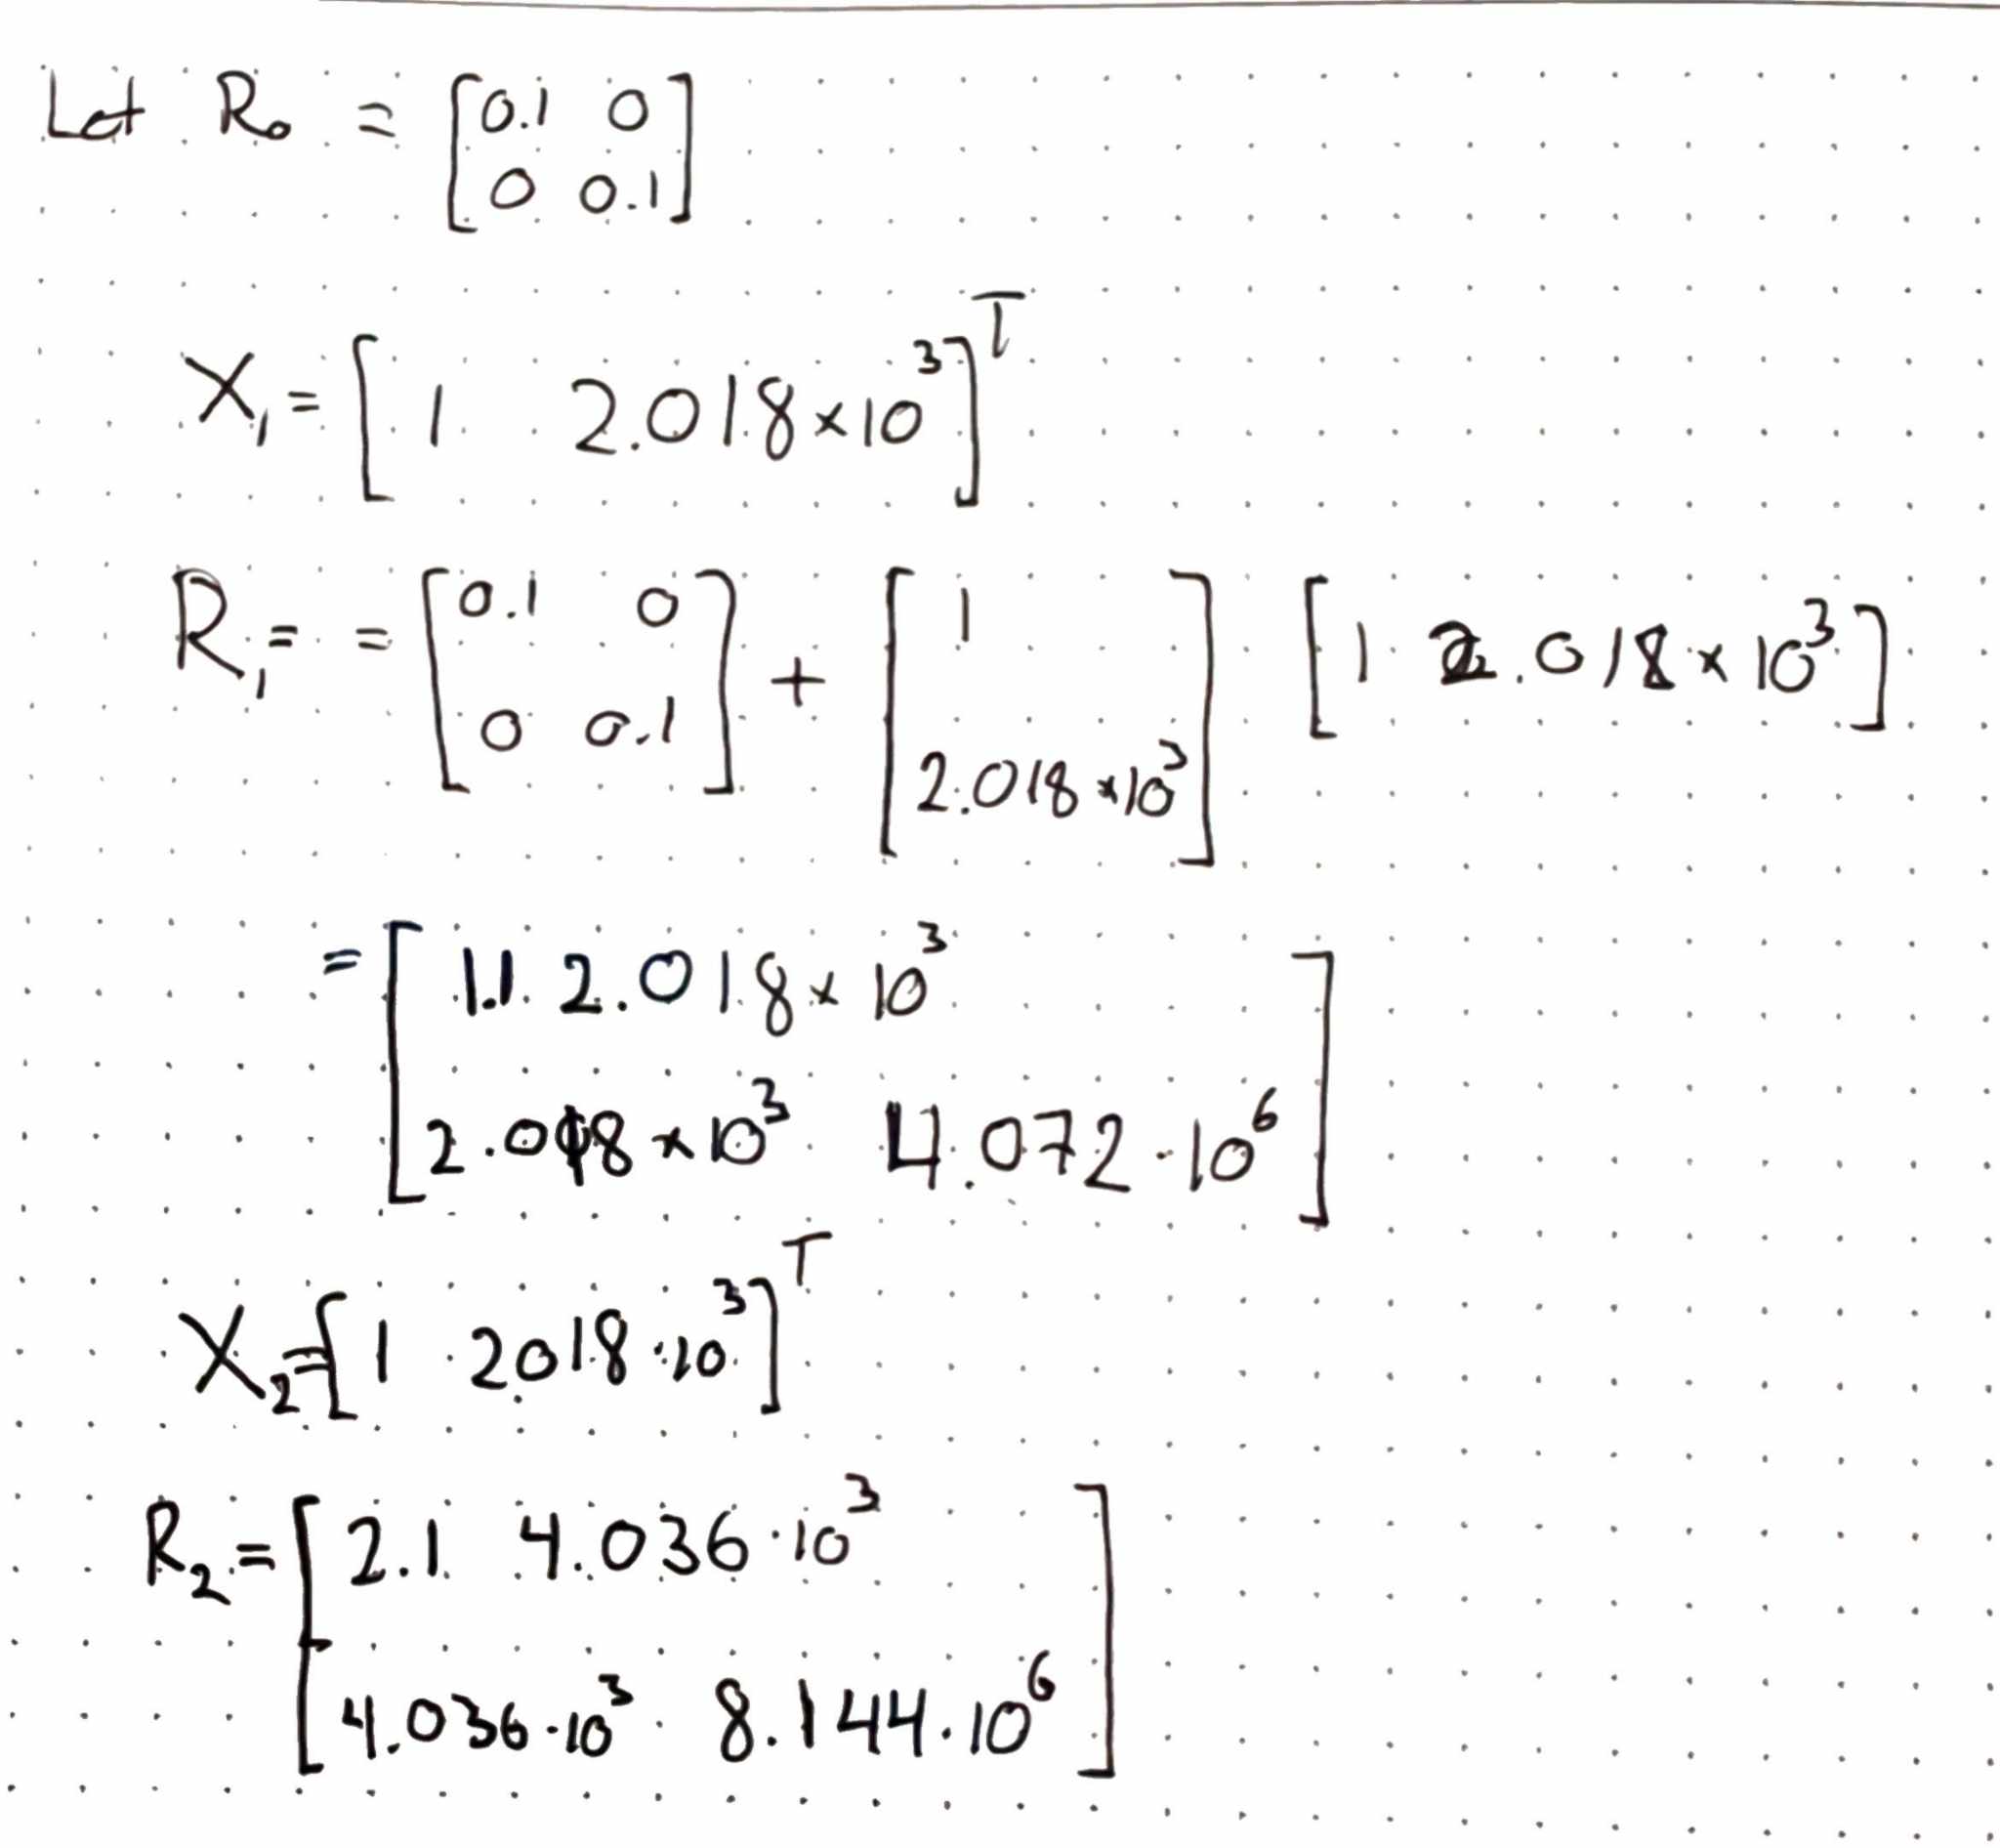 Let R₀ = [0.1 0
0 0.1]
X₁ = [1 2.018×10³]ᵀ
R₁ = = [0.1 0
0 0.1] + [1
2.018×10³] [1 2.018×10³]
= [1.1 2.018×10³
2.018×10³ 4.072·10⁶]
X₂ = [1 2.018·10³]ᵀ
R₂ = [2.1 4.036·10³
4.036·10³ 8.144·10⁶]